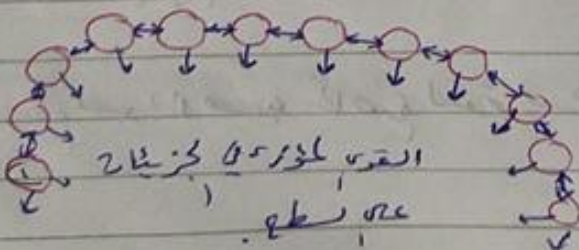 القوى المؤثرة لجزيئات
على سطح.